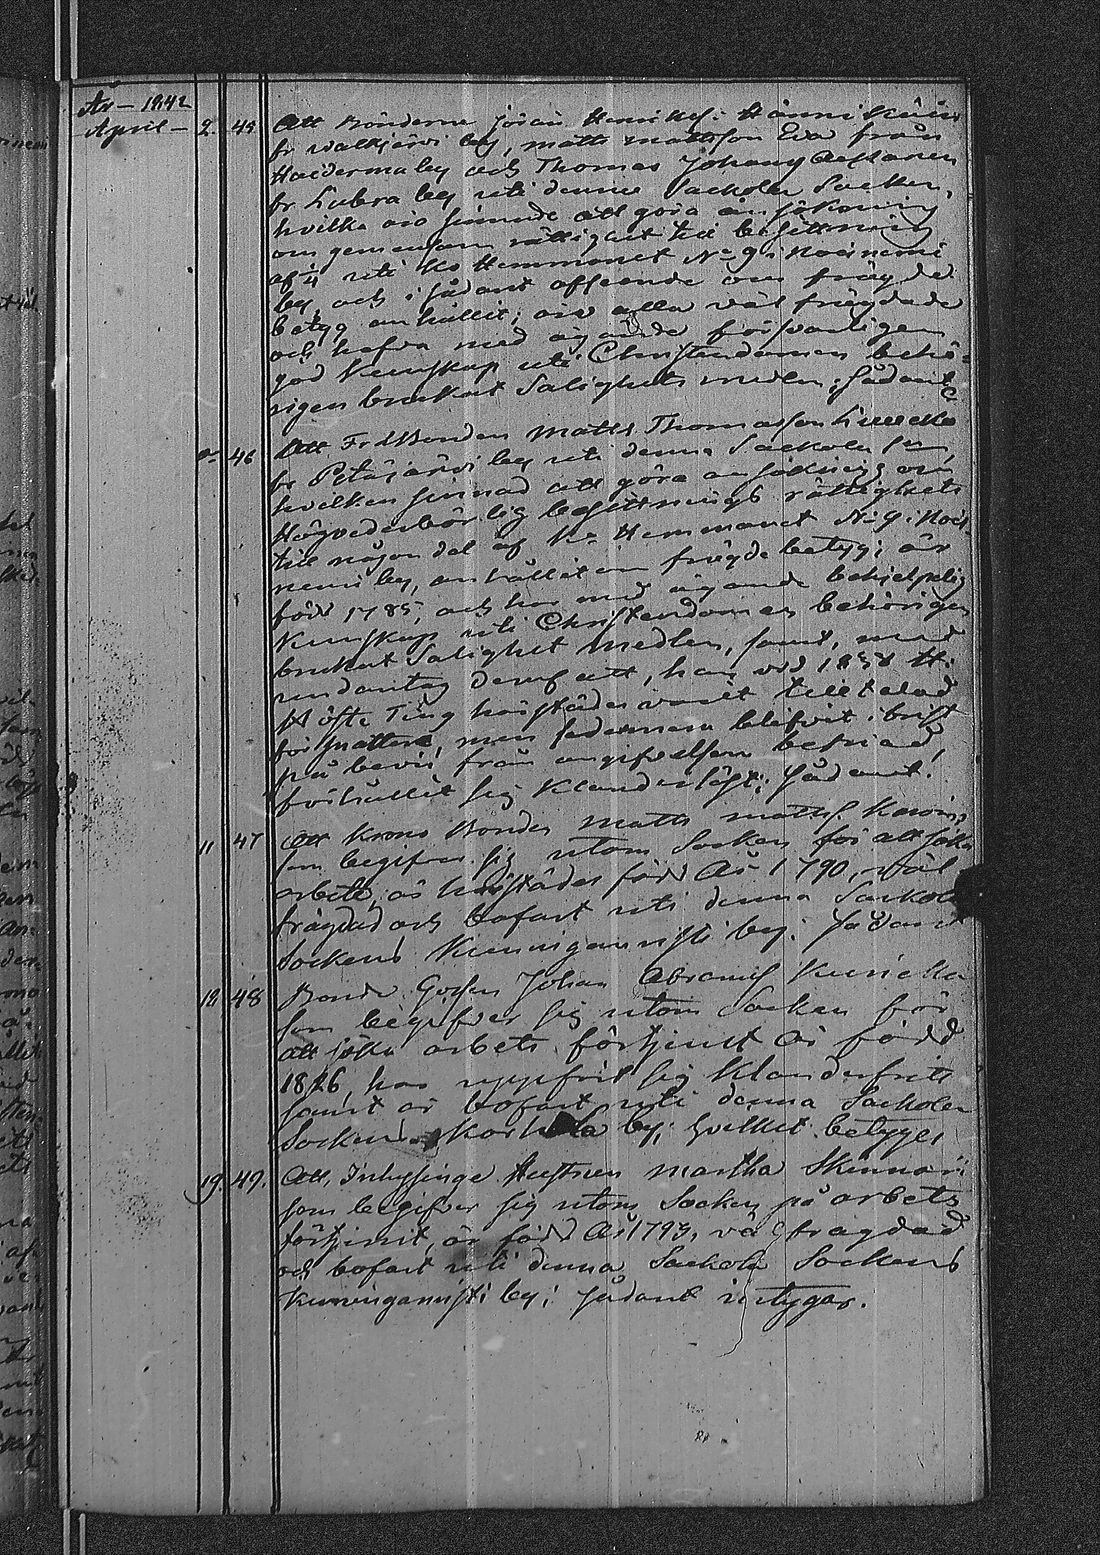 År - 1842
April - 2. 45 Att Bönderne Jöran Henriks. Hännikäin
fr Walkjärvi by, Matts Mattsson Eva från
by och Thomas Johans
fr by uti denna Sackola Socken,
hvilka äro sinnade att göra ansökning
om gemensam rättighet till besittning
af uti Ko Hemmanet No 9 i Noisniemi
by och i sådant afseende om frägde
betyg anhållit; äro alla väl frägdade
och hafva med ägande försvarligen
god Kunskap uti Christendomen behö-
rigen brukat Salighets medlen; sådant
46 Att Fr. d. Bonden Matts Thomasson
fr Petäjärvi by uti denna Sackola Sn,
hvilken sinnad att göra ansökning om
Högvederbörlig besittnings rättighet
till någon del af Ko Hemmanet No 9 i Nois-
niemi by, anhållit om frägde betyg; är
född 1785, och har med ägande behjelpelig
Kunskap uti Christendomen behörigen
brukat Salighets medlen, samt, med
undantag deraf att, han vid 1838 H.
Ting härstädes varit tilltalad
för snatteri, men sedermera blifvit i brist
på bevis från angifvelsen befriad,
förhållit sig klanderlöst; sådant.
11 47 Att Krono Bonden Matts Matts.
som begifver sig utom Socken för att söka
arbete, är härstädes född År 1790, väl
frägdad och bofast uti denna Sackola
Sockens Kuninganristi by. Sådant
18 48 Bonde Gossen Johan Abrams. Kurickka
som begifver sig utom Socken för
att söka arbets förtjenst är född
1826, har uppfört sig klanderfritt
samt är bofast uti denna Sackola
Sockens by; hvilket betygas
19. 49. Att, Inhysinge Hustrun Martha Skinnari
som begifver sig utom Socken på arbets
förtjenst, är född År 1793, väl frägdad
och bofast uti denna Sackola Sockens
Kuninganristi by; sådant intygas.